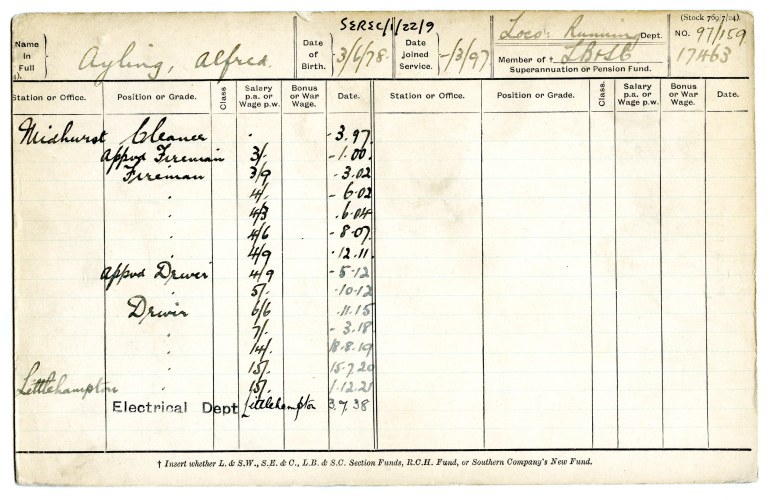 SEREC/1/22/9
(Stock 769 7/24).
Name in Full
Ayling, Alfred.
Date of Birth.
3/6/78
Date joined Service.
-/3/97
Loco: Running Dept.
Member of † LB&SC
Superannuation or Pension Fund.
NO. 97/159
17463
Station or Office. Position or Grade. Class Salary p.a. or Wage p.w. Bonus or War Wage. Date. Station or Office. Position or Grade. Class Salary p.a. or Wage p.w. Bonus or War Wage. Date.
Midhurst Cleaner - - 3.97
Appvd Fireman 3/- - 1.00
Fireman 3/9 - 3.02
" 4/- - 6.02
" 4/3 . 6.04
" 4/6 - 8.07
" 4/9 . 12.11
Appvd Driver 4/9 - 5.12
" 5/- . 10.12
Driver 6/6 . 11.15
" 7/- - 3.18
" 14/- 18.8.19
" 15/- 15.7.20
Littlehampton " 15/- 1.12.21
Electrical Dept Littlehampton 3.7.38
† Insert whether L. & S.W., S.E. & C., L.B. & S.C. Section Funds, R.C.H. Fund, or Southern Company's New Fund.